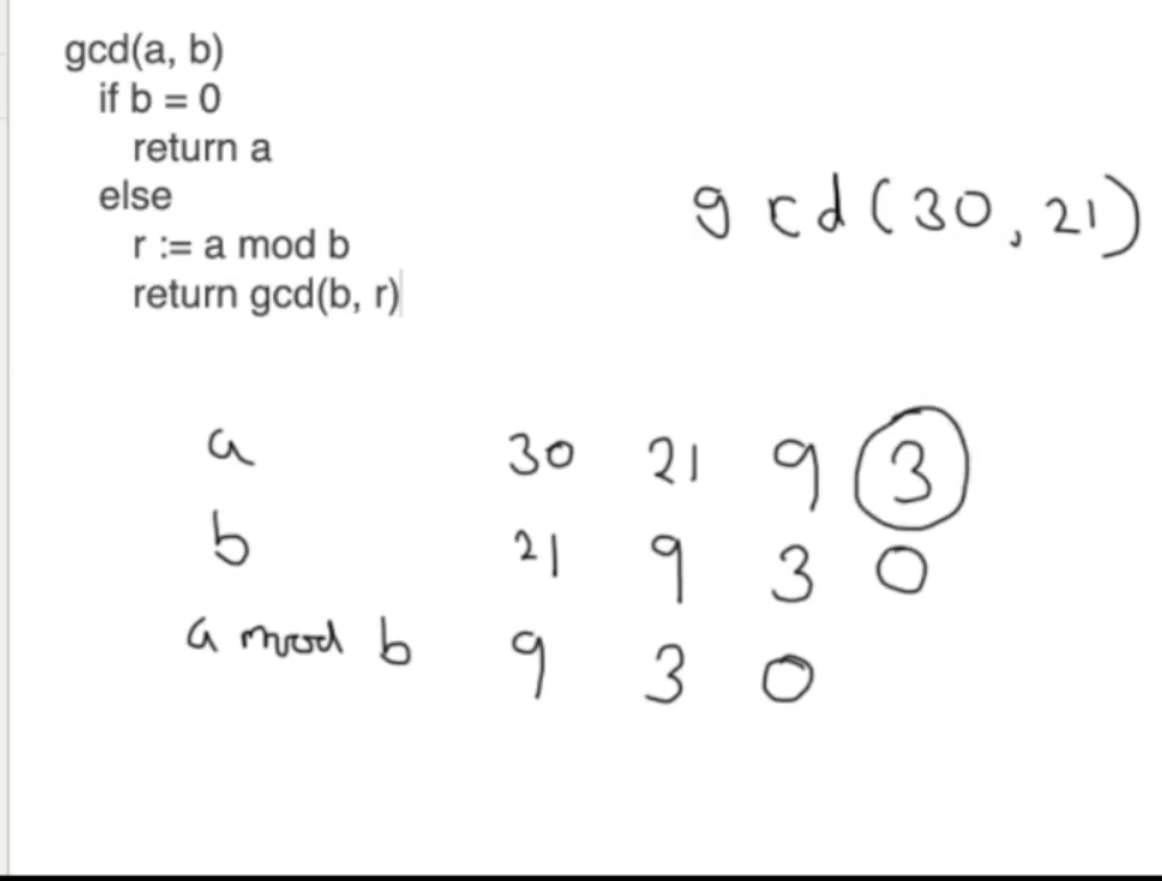 gcd(a, b)
if b = 0
return a
else
r := a mod b
return gcd(b, r)
gcd(30, 21)
a 30 21 9 3
b 21 9 3 0
a mod b 9 3 0